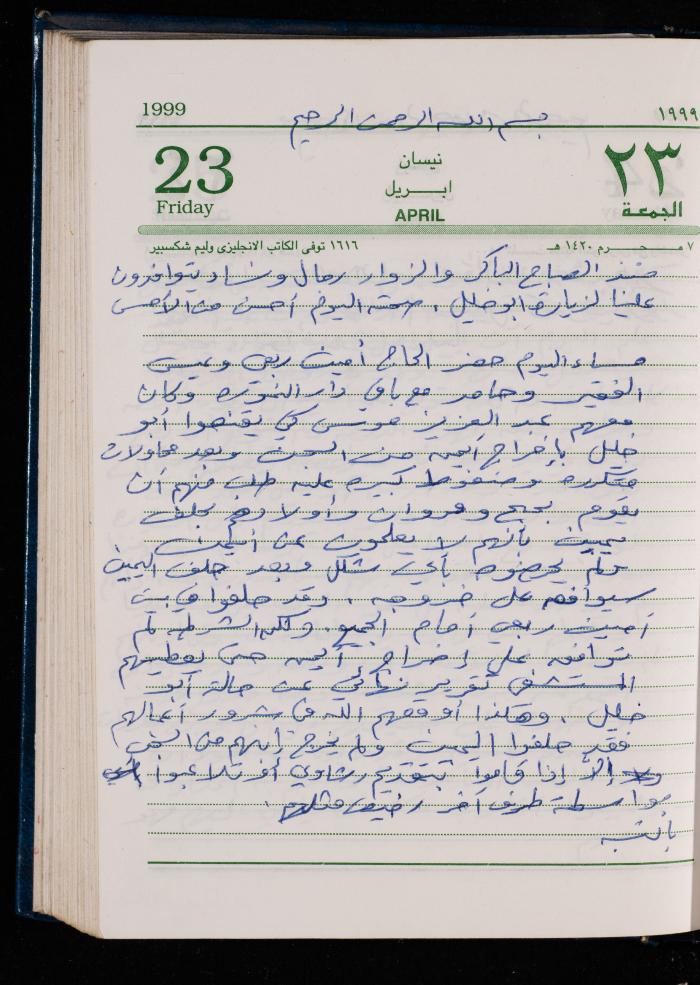 1999
١٩٩٩
بسم الله الرحمن الرحيم
23
Friday
نيسان
ابريل
APRIL
٢٣
الجمعة
٧ محرم ١٤٢٠ هـ
١٦١٦ توفى الكاتب الانجليزى وليم شكسبير
منذ الصباح الباكر والزوار رجال ونساء يتوافدون
علينا لزيارة أبو خليل . صحته اليوم أحسن من الأمس
مساء اليوم حضر الحاج أمين ربعي وعيسى
الفقير وحامد مع باقي دار وكان
معهم عبد العزيز موسى كي يقنعوا أبو
خليل بإخراج أيمن من السجن وبعد محاولات
متكررة وضغوط كبيرة عليه طلب منهم أن
يقوم بحبح ومروان وأولادهم بحلف
يمين بأنهم لا يعلمون عن أيمن
ولم يحرضوه بأي شكل وبعد حلف اليمين
سيوافق على خروجه . وقد حلفوا في بيت
أمين ربعي أمام الجميع . ولكن الشرطة لم
توافق على إخراج أيمن حتى يعطيهم
المستشفى تقرير نهائي عن حالة أبو
خليل . وهكذا أوقعهم الله في شرور أعمالهم
فقد حلفوا اليمين ولم يخرج إبنهم من السجن
إلا إذا قاموا بتقديم رشاوي أو تلاعبوا
بواسطة طرف آخر رخيص مثلهم .